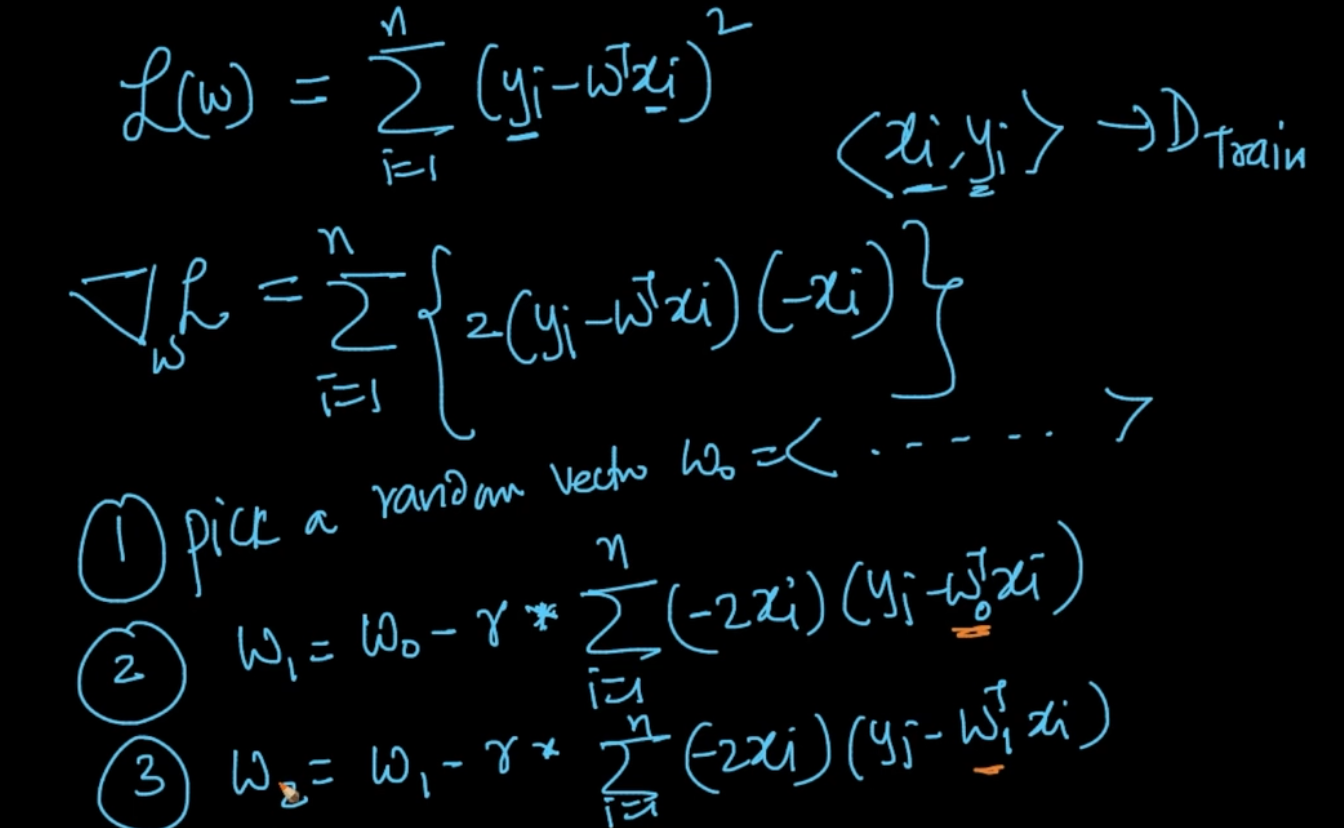 ℒ(w) = Σ_{i=1}^{n} (yᵢ - wᵀxᵢ)²
<xᵢ, yᵢ> → D Train
∇_w ℒ = Σ_{i=1}^{n} {2(yᵢ - wᵀxᵢ)(-xᵢ)}
① pick a random vector w₀ = < . - - - . . >
② w₁ = w₀ - γ * Σ_{i=1}^{n} (-2xᵢ)(yᵢ - w₀ᵀxᵢ)
③ w₂ = w₁ - γ * Σ_{i=1}^{n} (-2xᵢ)(yᵢ - w₁ᵀxᵢ)